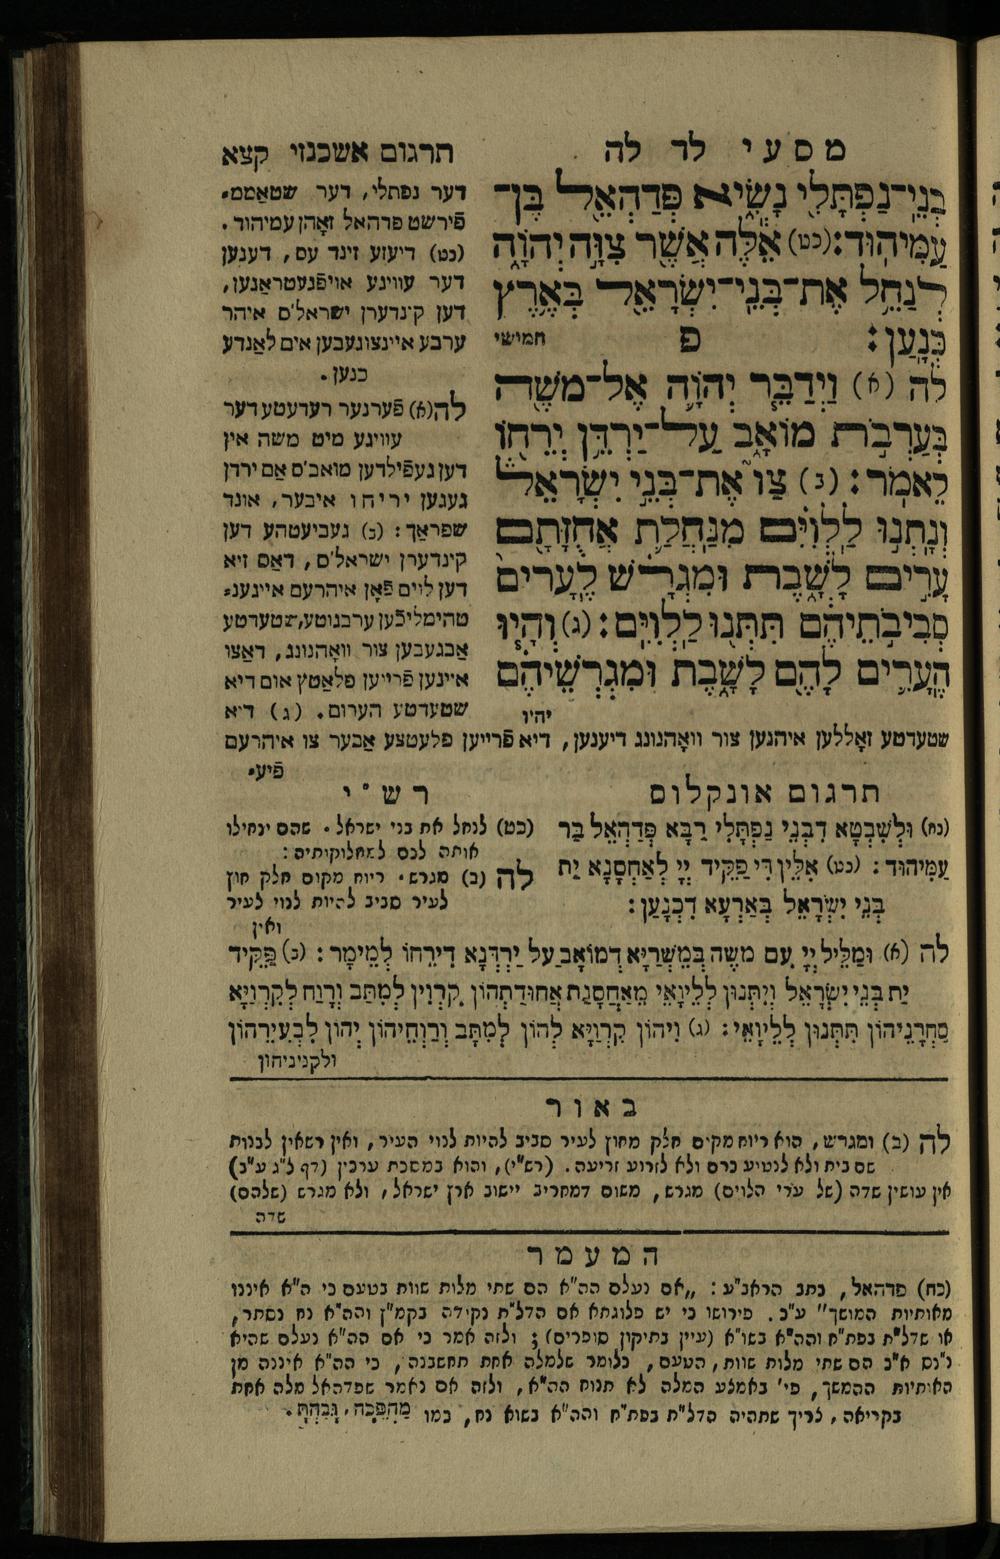 מסעי לד לה
בְּנֵי־נַפְתָּלִי נָשִׂיא פְּדַהְאֵל בֶּן־
עַמִּיהוּד: (כט) אֵלֶּה אֲשֶׁר צִוָּה יְהוָֹה
לְנַחֵל אֶת־בְּנֵי־יִשְׂרָאֵל בְּאֶרֶץ
כְּנָעַן: פ חמישי
לה (א) וַיְדַבֵּר יְהוָֹה אֶל־מֹשֶׁה
בְּעַרְבֹת מוֹאָב עַל־יַרְדֵּן יְרֵחוֹ
לֵאמֹר: (ב) צַו אֶת־בְּנֵי יִשְׂרָאֵל
וְנָתְנוּ לַלְוִיִּם מִנַּחֲלַת אֲחֻזָּתָם
עָרִים לָשָׁבֶת וּמִגְרָשׁ לֶעָרִים
סְבִיבֹתֵיהֶם תִּתְּנוּ לַלְוִיִּם: (ג) וְהָיוּ
הֶעָרִים לָהֶם לָשָׁבֶת וּמִגְרְשֵׁיהֶם
יהיו
תרגום אשכנזי קצא
דער נפתלי, דער שטאַממ⸗
פֿירשט פדהאל זאָהן עמיהוד.
(כט) דיעזע זינד עס, דענען
דער עוויגע אויפֿגעטראַגען,
דען קינדערן ישראל'ס איהר
ערבע איינצוגעבען אים לאַנדע
כנען.
לה (א) פֿערנער רעדעטע דער
עוויגע מיט משה אין
דען געפֿילדען מואב'ס אַם ירדן
געגען יריחו איבער, אונד
שפראַך: (ב) געביעטהע דען
קינדערן ישראל'ס, דאַס זיא
דען לוים פֿאָן איהרעם אייגענ⸗
טהימליכֿען ערבגוטע, שטעדטע
אַבגעבען צור וואָהנונג, דאַצו
איינען פֿרייען פלאַטץ אום דיא
שטעדטע הערום. (ג) דיא
שטעדטע זאָללען איהנען צור וואָהנונג דיענען, דיא פֿרייען פלעטצע אַבער צו איהרעם
פֿיע⸗
תרגום אונקלוס
(כח) וּלְשִׁבְטָא דִבְנֵי נַפְתָּלִי רַבָּא פְּדַהְאֵל בַּר
עַמִּיהוּד: (כט) אִלֵּין דִּי פַקִּיד יְיָ לְאַחְסָנָא יַת
בְּנֵי יִשְׂרָאֵל בְּאַרְעָא דִכְנָעַן:
רש"י
(כט) לנחל את בני ישראל. שהם ינחילו
אותה לכם למחלוקותיה:
לה (ב) מגרש. ריוח מקום חלק חוץ
לעיר סביב להיות לנוי לעיר
ואין
לה (א) וּמַלִּיל יְיָ עִם מֹשֶׁה בְּמֵשְׁרַיָּא דְמוֹאָב עַל יַרְדְּנָא דִירֵחוֹ לְמֵימָר: (ב) פַּקֵּיד
יַת בְּנֵי יִשְׂרָאֵל וְיִתְּנוּן לְלֵיוָאֵי מֵאַחְסָנַת אֲחוּדַתְהוֹן קִרְוִין לְמִתַּב וְרָוַח לְקִרְוַיָּא
סַחְרָנֵיהוֹן תִּתְּנוּן לְלֵיוָאֵי: (ג) וִיהוֹן קִרְוַיָּא לְהוֹן לְמִתָּב וְרַוְחֵיהוֹן יְהוֹן לִבְעִירֵהוֹן
ולקניניהון
באור
לה (ב) ומגרש, הוא ריוח מקום חלק מחוץ לעיר סביב להיות לנוי העיר, ואין רשאין לבנות
שם בית ולא לנטיע כרם ולא לזרוע זריעה. (רש"י), והוא במסכת ערכין (דף ל"ג ע"ב)
אין עושין שדה (של ערי הלוים) מגרש, משום דמחריב יישוב ארץ ישראל, ולא מגרש (שלהם)
שדה
המעמר
(כח) פדהאל, כתב הראב"ע: „אם נעלם הה"א הם שתי מלות שוות בטעם כי ה"א איננו
מאותיות המושך" ע"כ. פירושו כי יש פלוגתא אם הדל"ת נקודה בקמ"ץ והה"א נח נסתר,
או שדל"ת בפת"ח והה"א בשו"א (עיין בתיקון סופרים); ולזה אמר כי אם הה"א נעלם שהיא
א"כ הם שתי מלות שוות, הטעם, כלומר שלמלה אחת תחשבנה, כי הה"א איננה מן
האותיות ההמשך, פי' באמצע המלה לא תנוח הה"א, ולזה אם נאמר שפדהאל מלה אחת
בקריאה, צריך שתהיה הדל"ת בפת"ח והה"א בשוא נח, כמו מַהְפֵּכָה, גָּבַהְתָּ.